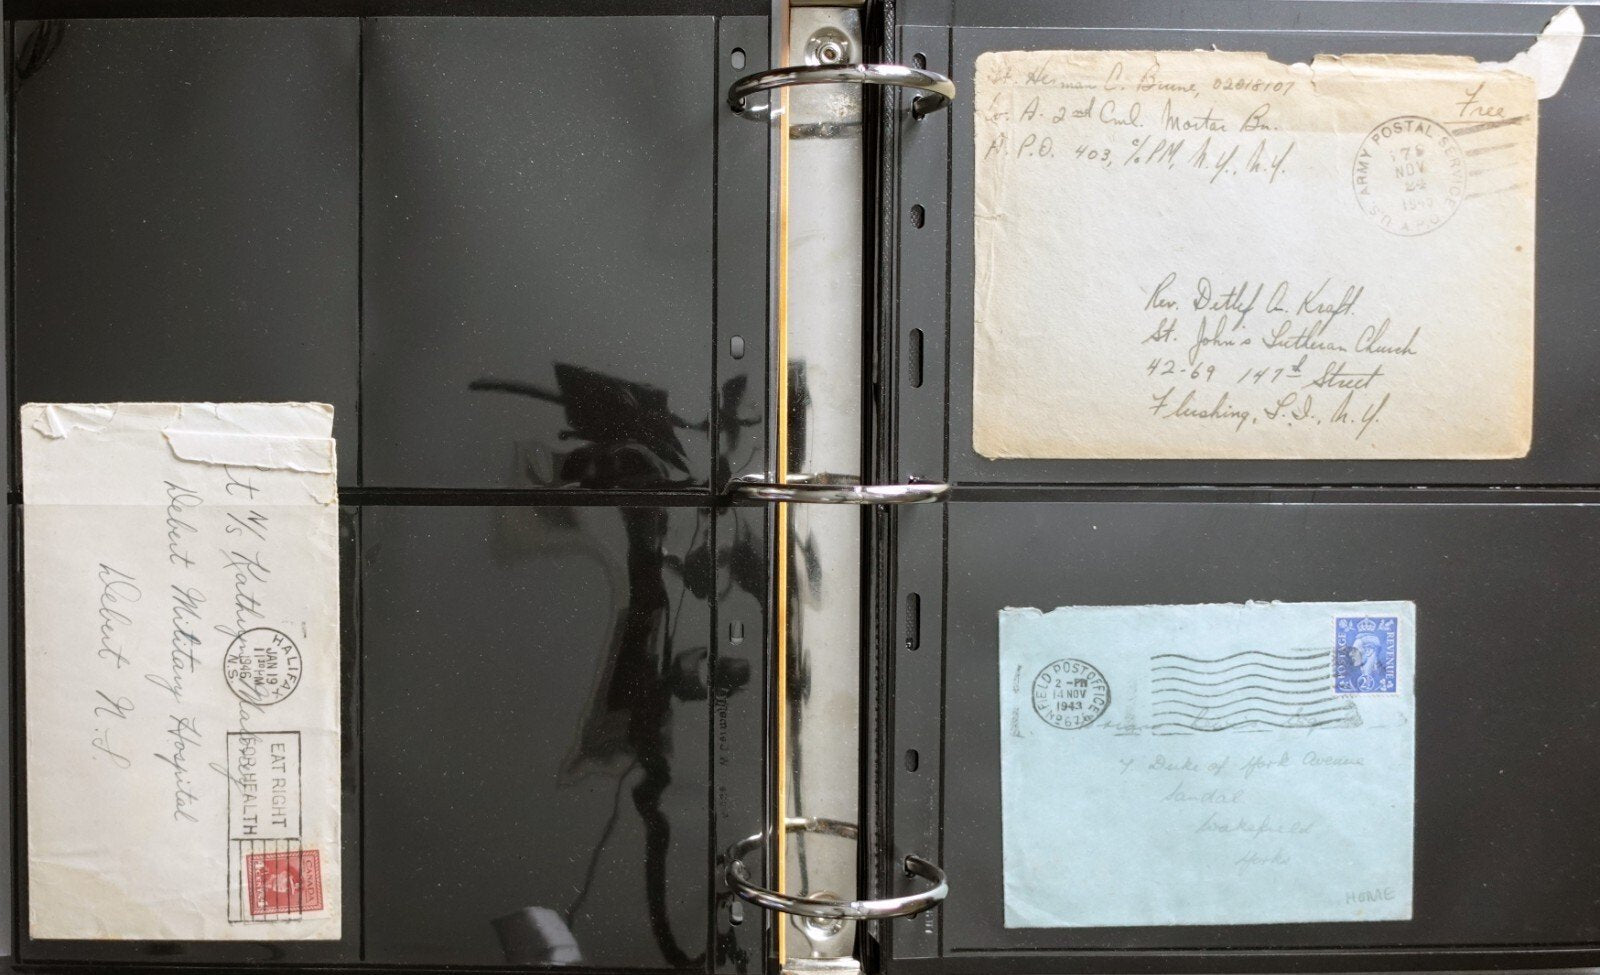 Lt N/s Kathryn
Debert Military Hospital
Debert N.S.
HALIFAX
JAN 19
11 30 PM
1946
N.S.
EAT RIGHT
FOR HEALTH
CANADA
4 CENTS 4
Lt. Herman C. Brune, 02018107
Co. A. 2nd Cml. Mortar Bn.
A. P.O. 403, c/o PM, N.Y., N.Y.
Free
U.S. ARMY POSTAL SERVICE
NOV
24
Rev. Detlef A. Kraft.
St. John's Lutheran Church
42-69 147th Street
Flushing, L.I., N.Y.
FIELD POST OFFICE
2 - PM
14 NOV
1943
POSTAGE
REVENUE
7 Duke of York Avenue
Sandal
Wakefield
Yorks
HOME